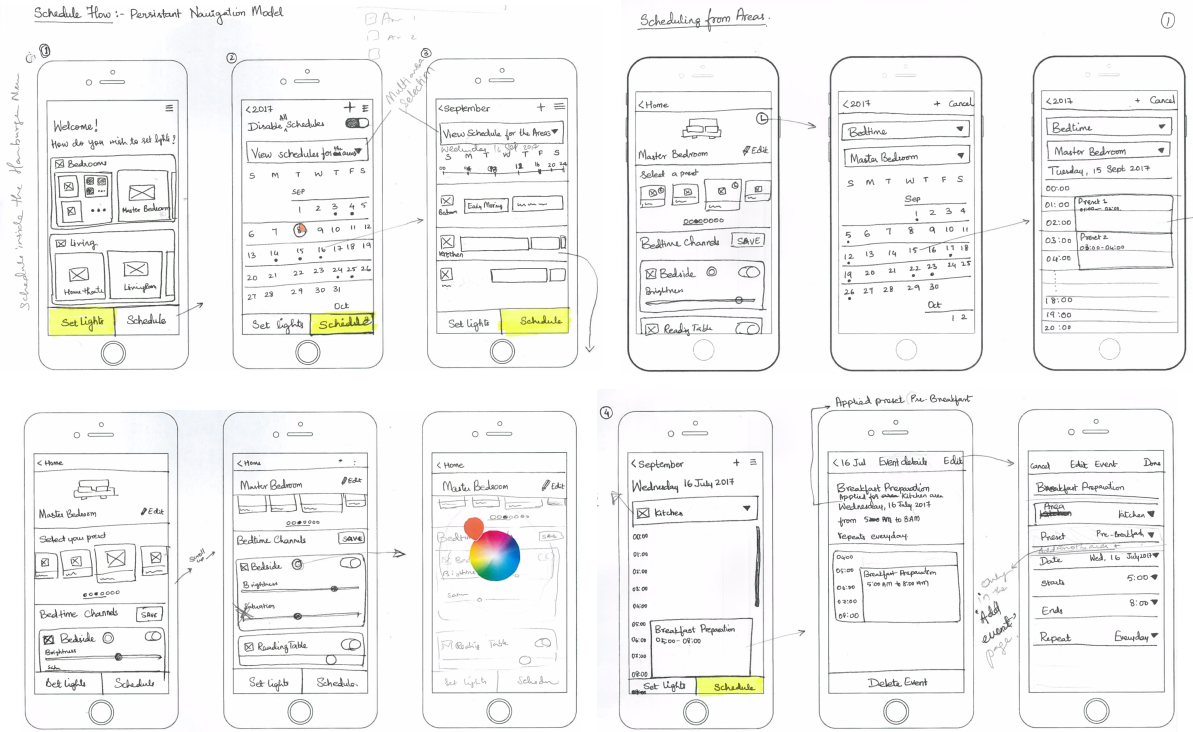 Schedule Flow :- Persistant Navigation Model
Schedule inside the Hamburger Menu
1
Welcome!
How do you wish to set lights?
Bedrooms
Master Bedroom
Living
Home theatre
Set lights
Schedule
2
< 2017
+
Disable All Schedules
View schedules for the areas
S M T W T F S
SEP
1 2 3 4 5
6 7 8 9 10 11 12
13 14 15 16 17 18 19
20 21 22 23 24 25 26
27 28 29 30 31
Oct
Set lights
Schedule
Multi area
Selection
3
< September
+
View Schedule for the Areas
Wednesday 16 Sep 2017
S M T W T F S
Early Morning
Kitchen
Set Lights
Schedule
Scheduling from Areas.
1
< Home
Master Bedroom
Edit
Select a preset
Bedtime Channels
SAVE
Bedside
Brightness
Reading Table
< 2017
+ Cancel
Bedtime
Master Bedroom
S M T W T F S
Sep
1 2 3 4
5 6 7 8 9 10 11
12 13 14 15 16 17 18
19 20 21 22 23 24 25
26 27 28 29 30
Oct
1 2
< 2017
+ Cancel
Bedtime
Master Bedroom
Tuesday, 15 Sept 2017
00:00
01:00
Preset 1
02:00
03:00
Preset 2
03:00-04:00
04:00
18:00
19:00
20:00
< Home
Master Bedroom
Edit
Select you preset
Bedtime Channels
SAVE
Bedside
Brightness
Set Lights
Schedule
Scroll
up
< Home
Master Bedroom
Edit
Bedtime Channels
SAVE
Bedside
Brightness
Saturation
Reading Table
Set lights
Schedule.
< Home
Master Bedroom
Edit
Reading Table
Set lights
4
< September
+
Wednesday 16 July 2017
Kitchen
00:00
01:00
02:00
03:00
04:00
05:00
06:00
Breakfast Preparation
05:00 - 08:00
07:00
08:00
Set Lights
Schedule
Applied preset Pre-Breakfast
< 16 Jul
Event details
Edit
Breakfast Preparation
Applied for Kitchen area
Wednesday, 16 July 2017
from 5 AM to 8AM
Repeats everyday
04:00
05:00
Breakfast Preparation
5:00 AM to 8:00 AM
06:00
07:00
08:00
Delete Event
Cancel
Edit Event
Done
Breakfast Preparation
Area
Kitchen
Kitchen
Preset
Pre-Breakfast
Date
Wed, 16 July 2017
Starts
5:00
Ends
8:00
Repeat
Everyday
Only
in the
"Add
event"
page.